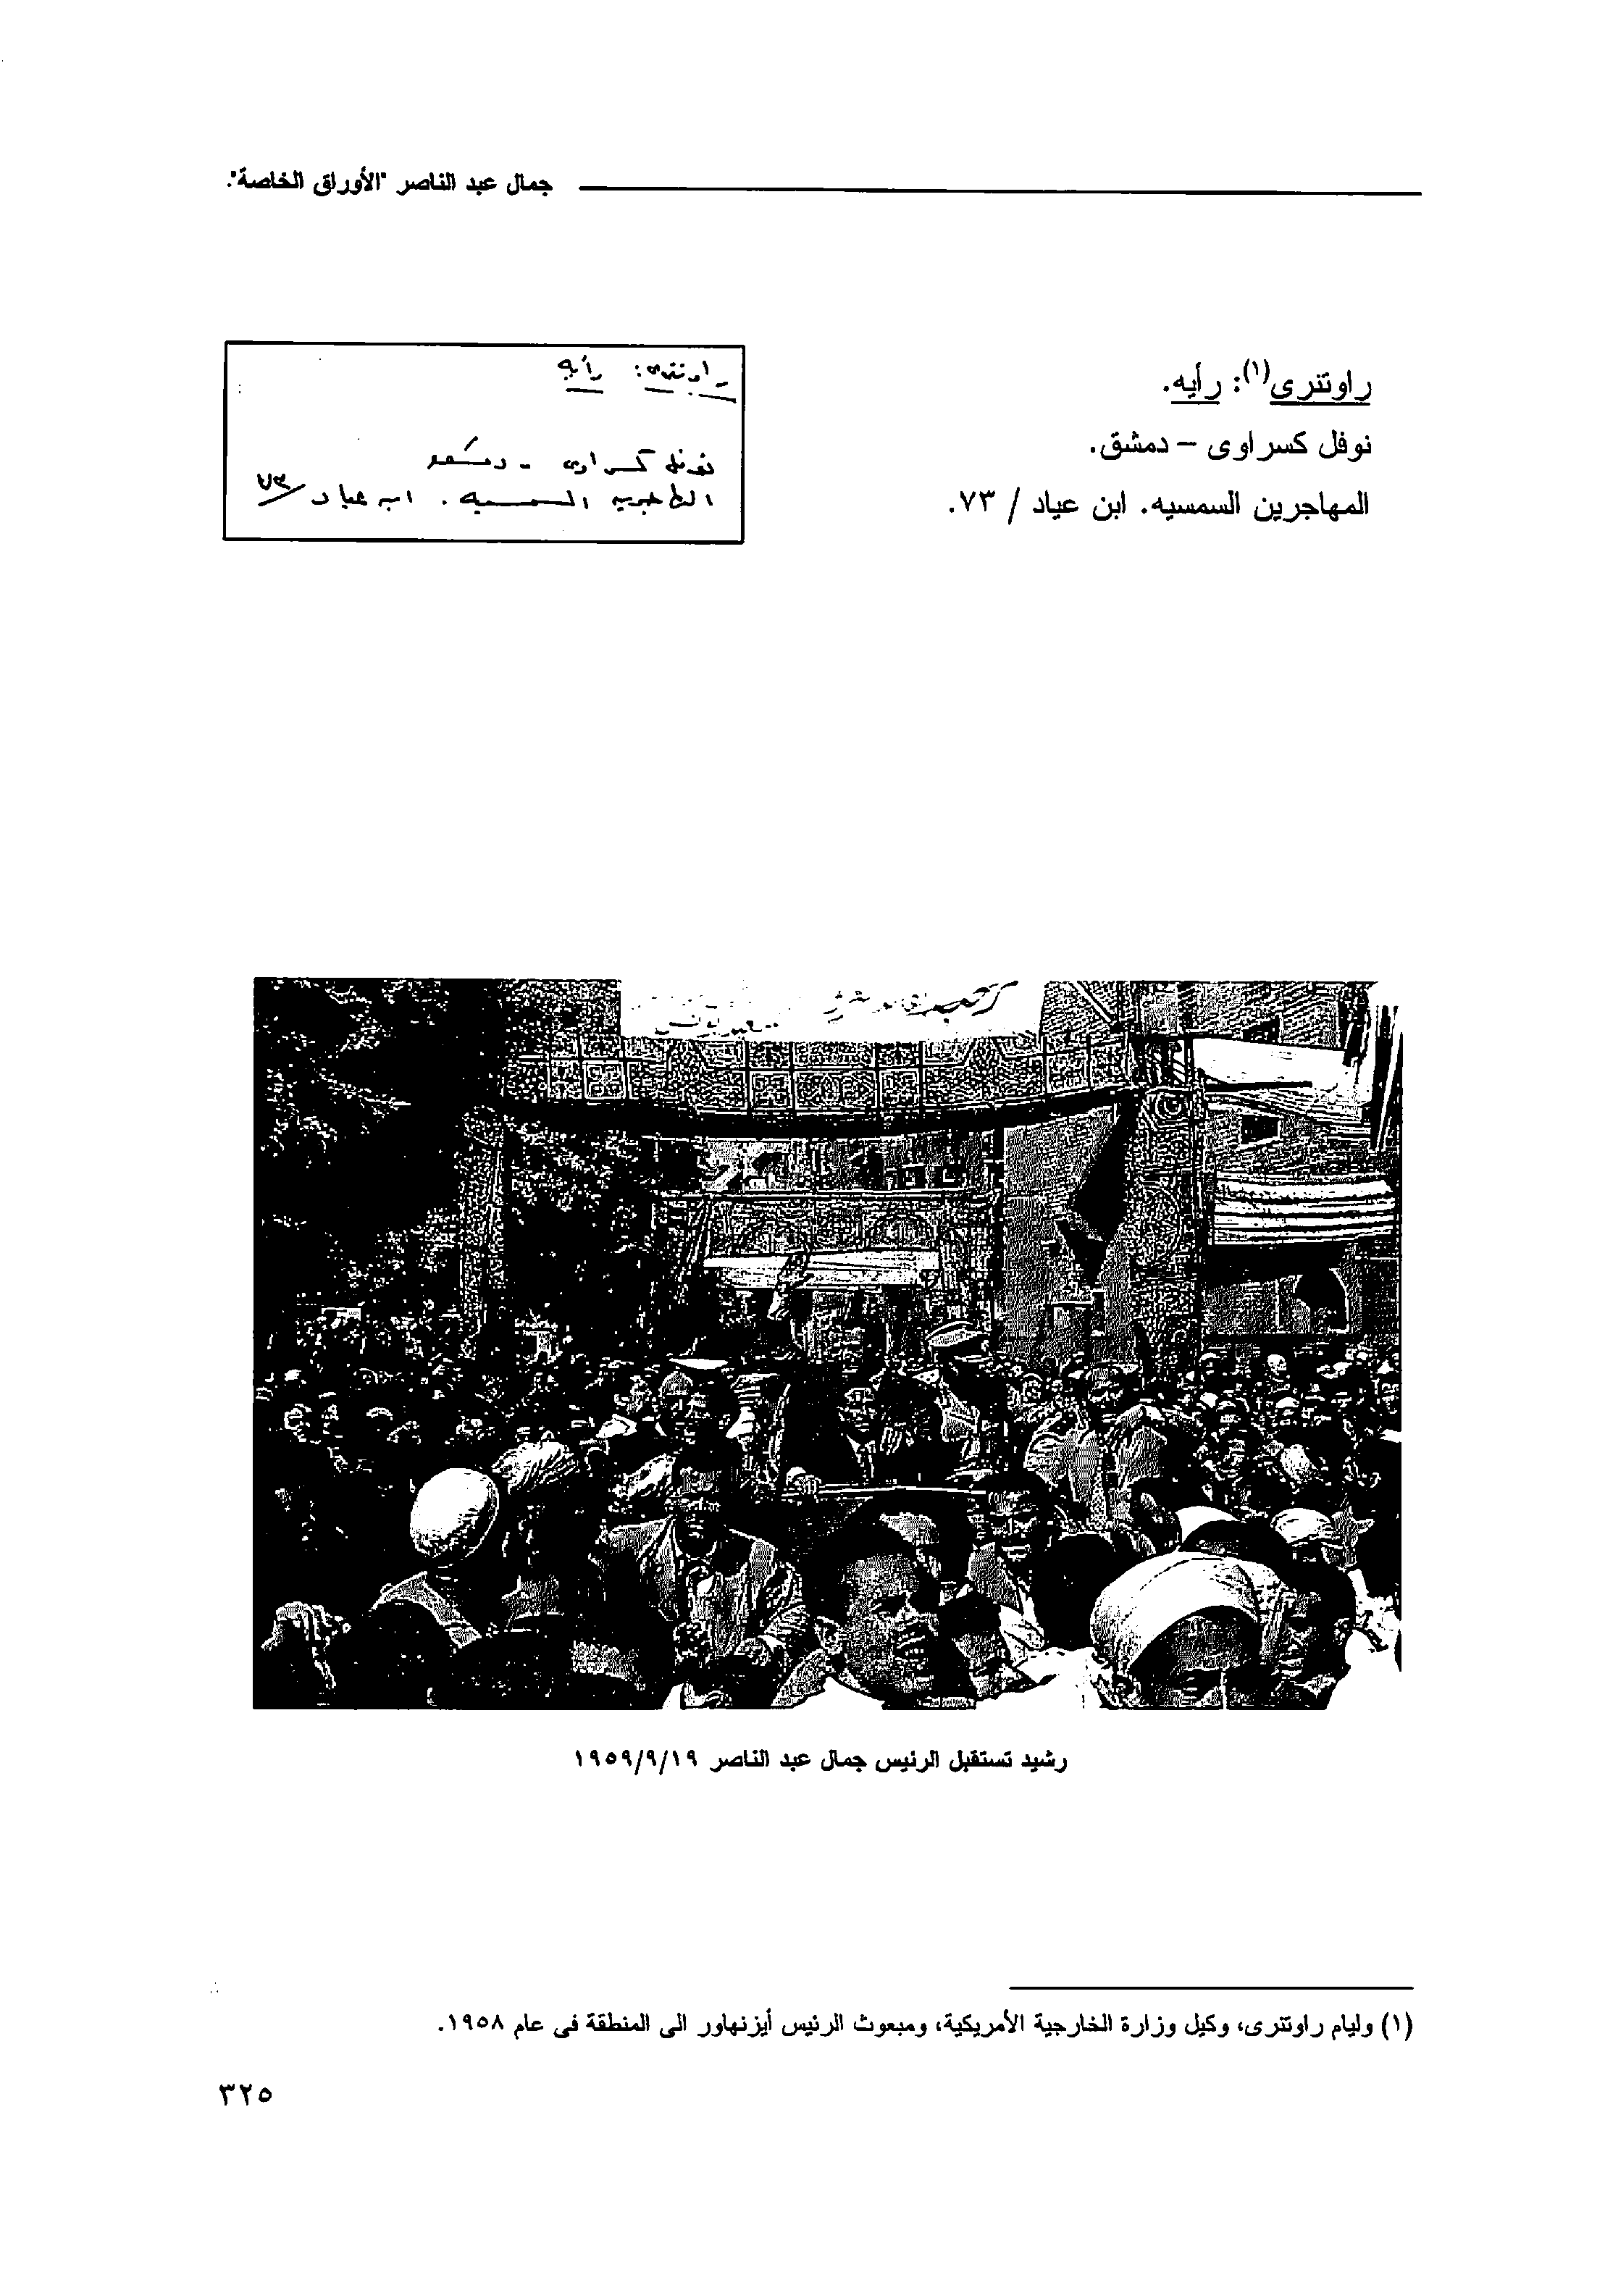 جمال عبد الناصر "الأوراق الخاصة".
راونترى(١): رأيه.
نوفل كسراوى – دمشق.
المهاجرين السمسيه. ابن عياد / ٧٣.
راونترى: رأيه
نوفل كسراوى - دمشق
المهاجرين السمسيه. ابن عياد / ٧٣
رشيد تستقبل الرئيس جمال عبد الناصر ١٩٥٩/٩/١٩
(١) وليام راونترى، وكيل وزارة الخارجية الأمريكية، ومبعوث الرئيس أيزنهاور الى المنطقة فى عام ١٩٥٨.
٣٢٥